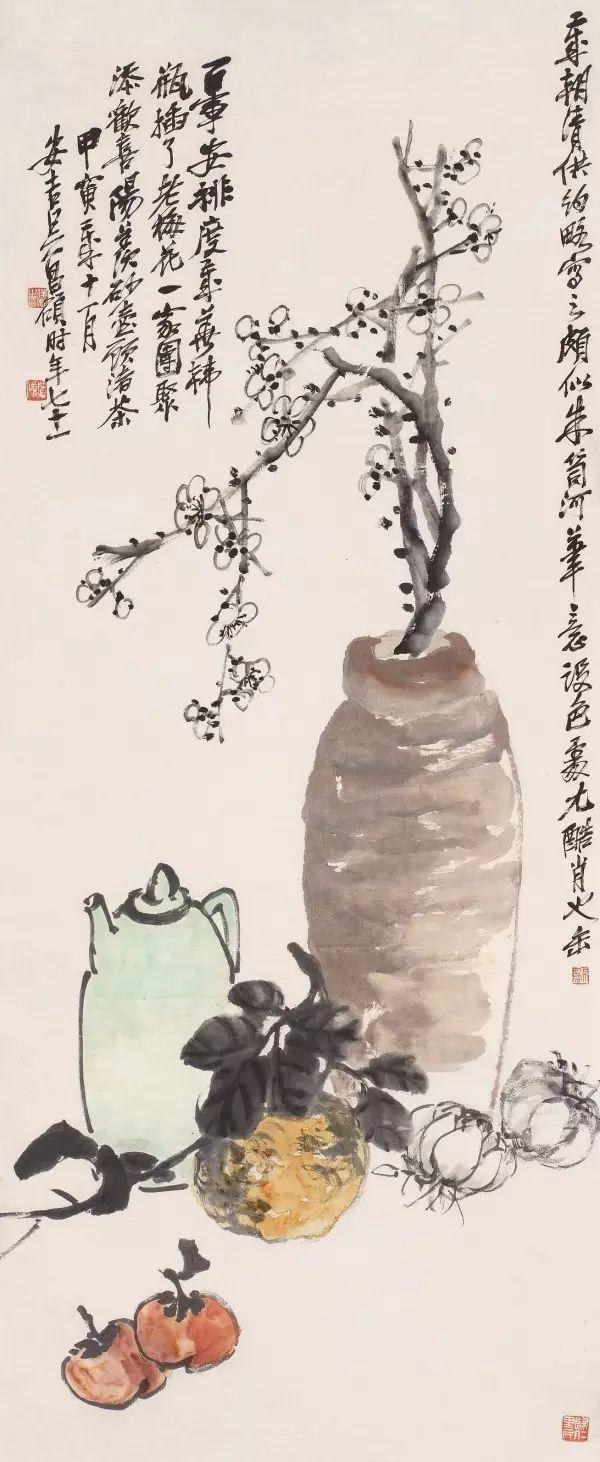 歲朝清供約略寫之頗似朱筍河筆意設色處尤酷肖也缶
百事安排度歲華
瓶插了老梅花一家團聚
添歡喜陽羨砂壺顧渚茶
甲寅歲十一月
安吉吳昌碩時年七十一